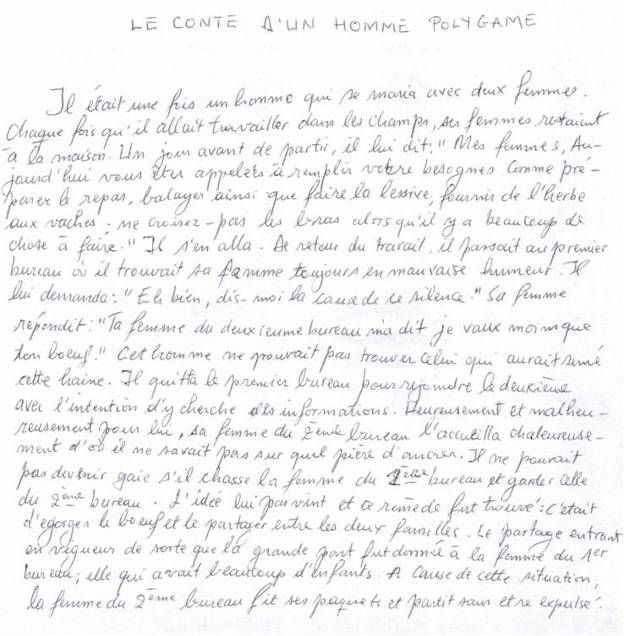 LE CONTE D'UN HOMME POLYGAME
Il était une fois un homme qui se maria avec deux femmes.
Chaque fois qu'il allait travailler dans les champs, ses femmes restaient
à la maison. Un jour avant de partir, il lui dit: "Mes femmes, Au-
jourd'hui vous êtes appelées à remplir votre besognes comme pré-
parer le repas, balayer ainsi que faire la lessive, fournir de l'herbe
aux vaches ; ne croisez-pas les bras alors qu'il y a beaucoup de
chose à faire." Il s'en alla. De retour du travail, il passait au premier
bureau où il trouvait sa famme toujours en mauvaise humeur. Il
lui demanda: "Eh bien, dis-moi la cause de ce silence." Sa femme
répondit: "Ta femme du deuxieume bureau m'a dit je vaux moins que
ton boeuf." Cet homme ne pouvait pas trouver celui qui aurait semé
cette haine. Il quitta le premier bureau pour rejoindre le deuxième
avec l'intention d'y cherche des informations. Heureusement et malheu-
reusement pour lui, sa femme du 2ème bureau l'accueilla chaleureuse-
ment d'où il ne savait pas sur quel pière d'ancrer. Il ne pouvait
pas devenir gaie s'il chasse la femme du 1ère bureau et garder celle
du 2ème bureau. L'idée lui parvint et ce remède fut trouvé: c'était
d'egorger le boeuf et le partager entre les deux familles. Le partage entrant
en vigueur de sorte que la grande part fut donnée à la femme du 1er
bureau; elle qui avait beaucoup d'enfants. A cause de cette situation,
la femme du 2ème bureau fit ses paquets et partit sans etre expulsé.